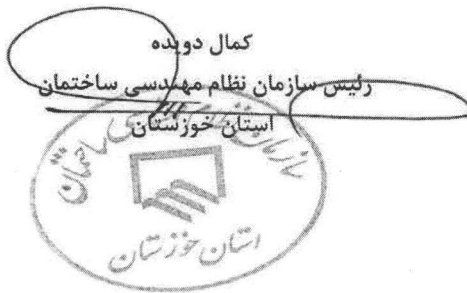 کمال دویده
رئیس سازمان نظام مهندسی ساختمان
استان خوزستان
سازمان نظام مهندسی ساختمان
استان خوزستان